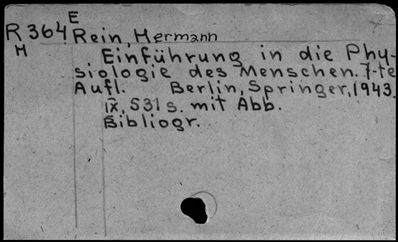 E
R 364 Rein, Hermann
M Einführung in die Phy-
siologie des Menschen. 7-te
Aufl. Berlin, Springer, 1943.
IX, 531 s. mit Abb.
Bibliogr.